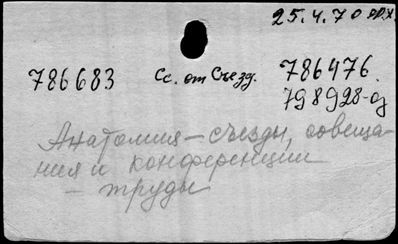 25.4.70
786683 Сс. от Съезд. 786476.
798928-од
Анатомия – съезды, совеща-
ния и конференции
– труды